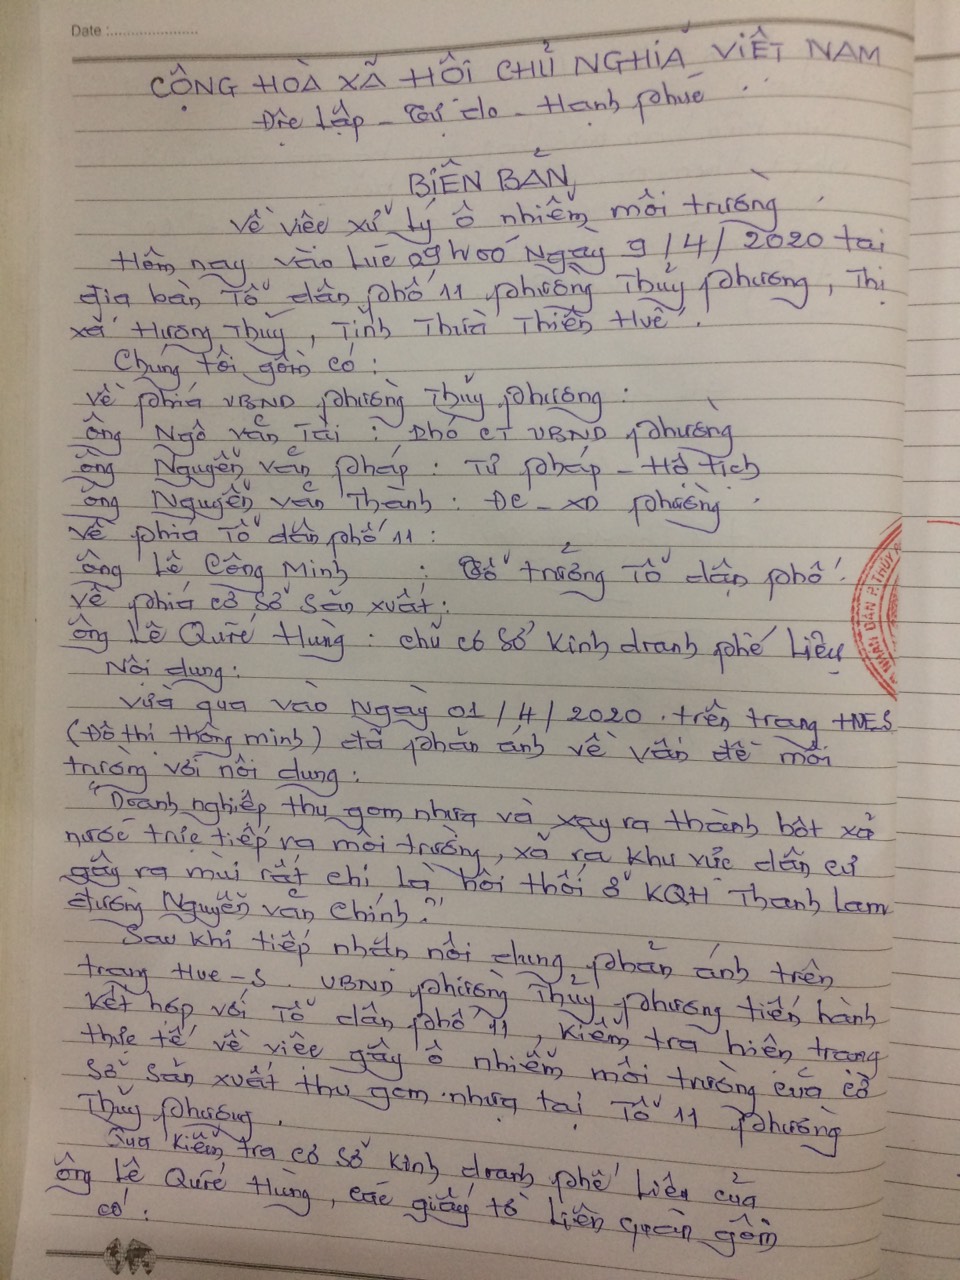 Date :
CỘNG HOÀ XÃ HỘI CHỦ NGHĨA VIỆT NAM
Độc lập - Tự do - Hạnh phúc
BIÊN BẢN
Về việc xử lý ô nhiễm môi trường
Hôm nay vào lúc 09h00 Ngày 9/4/2020 tại
địa bàn Tổ dân phố 11 phường Thủy phương, Thị
xã Hương Thủy, Tỉnh Thừa Thiên Huế.
Chúng tôi gồm có:
Về phía UBND phường Thủy phương:
Ông Ngô Văn Tài : Phó CT UBND phường
Ông Nguyễn Văn Pháp : Tư pháp - Hộ tịch
Ông Nguyễn Văn Thành : ĐC - XD phường
Về phía Tổ dân phố 11 :
Ông Lê Công Minh : Tổ trưởng Tổ dân phố.
Về phía cơ sở sản xuất:
Ông Lê Quốc Hùng : chủ cơ sở kinh doanh phế liệu
Nội dung:
Vừa qua vào Ngày 01/4/2020 trên trang HUES
(Đô thị thông minh) đã phản ánh về vấn đề môi
trường với nội dung:
"Doanh nghiệp thu gom nhựa và xay ra thành bột xả
nước trực tiếp ra môi trường, xả ra khu vực dân cư
gây ra mùi rất chi là hôi thối ở KQH Thanh Lam
đường Nguyễn Văn Chính."
Sau khi tiếp nhận nội dung phản ánh trên
trang Hue-S. UBND phường Thủy phương tiến hành
kết hợp với Tổ dân phố 11, kiểm tra hiện trạng
thực tế về việc gây ô nhiễm môi trường của cơ
sở sản xuất thu gom nhựa tại Tổ 11 phường
Thủy phương.
Qua kiểm tra cơ sở kinh doanh phế liệu của
ông Lê Quốc Hùng, các giấy tờ liên quan gồm
có:
NHÂN DÂN P. THỦY